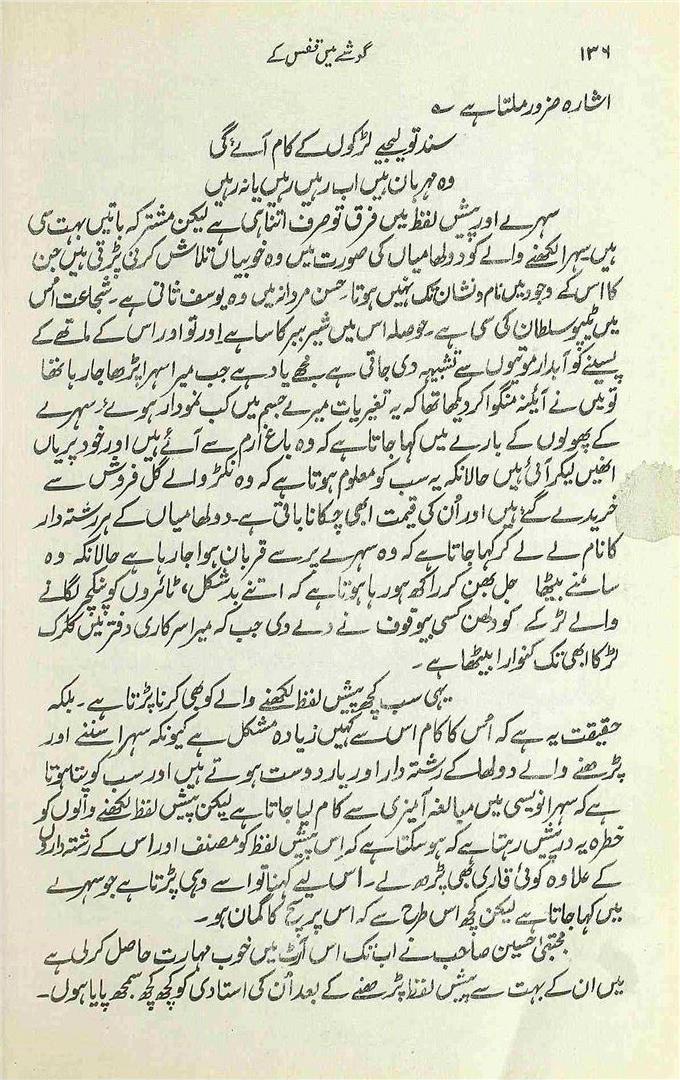 ۱۳۶
گوشے میں قفس کے
اشارہ ضرور ملتا ہے ؎
سند تو لیجیے لڑکوں کے کام آئے گی
وہ مہربان ہیں اب رہیں رہیں یا نہ رہیں
سہرے اور پیش لفظ میں فرق تو صرف اتنا ہی ہے لیکن مشترکہ باتیں بہت سی
ہیں۔ سہرا لکھنے والے کو دولھا میاں کی صورت میں وہ خوبیاں تلاش کرنی پڑتی ہیں جن
کا اس کے وجود میں نام و نشان تک نہیں ہوتا۔ حسن مردانہ میں وہ یوسف ثانی ہے۔ شجاعت اُس
میں ٹیپو سلطان کی سی ہے۔ حوصلہ اس میں شیر ببر کا سا ہے اور تو اور اس کے ماتھے کے
پسینے کو آبدار موتیوں سے تشبیہہ دی جاتی ہے مجھے یاد ہے جب میرا سہرا پڑھا جا رہا تھا
تو میں نے آئینہ منگوا کر دیکھا تھا کہ یہ تغیریات میرے جسم میں کب نمودار ہوئے؟ سہرے
کے پھولوں کے بارے میں کہا جاتا ہے کہ وہ باغ اَرم سے آئے ہیں اور خود پریاں
انھیں لیکر آئی ہیں حالانکہ یہ سب کو معلوم ہوتا ہے کہ وہ نکڑ والے گل فروش سے
خریدے گئے ہیں اور اُن کی قیمت ابھی چکانا باقی ہے۔ دولھا میاں کے ہر رشتہ دار
کا نام لے لے کر کہا جاتا ہے کہ وہ سہرے پر سے قربان ہوا جا رہا ہے حالانکہ وہ
سامنے بیٹھا جل بھن کر راکھ ہو رہا ہوتا ہے کہ اتنے بدشکل، ٹائروں کو پنکچر لگانے
والے لڑکے کو دلھن کسی بیوقوف نے دے دی جب کہ میرا سرکاری دفتر میں کلرک
لڑکا ابھی تک کنوارا بیٹھا ہے۔
یہی سب کچھ پیش لفظ لکھنے والے کو بھی کرنا پڑتا ہے۔ بلکہ
حقیقت یہ ہے کہ اُس کا کام اس سے کہیں زیادہ مشکل ہے کیونکہ سہرا سننے اور
پڑھنے والے دولھا کے رشتہ دار اور یار دوست ہوتے ہیں اور سب کو پتا ہوتا
ہے کہ سہرا نویسی میں مبالغہ آمیزی سے کام لیا جاتا ہے لیکن پیش لفظ لکھنے والوں کو
خطرہ یہ درپیش رہتا ہے کہ ہو سکتا ہے کہ اِس پیش لفظ کو مصنف اور اس کے رشتہ داروں
کے علاوہ کوئی قاری بھی پڑھ لے۔ اس لیے کہنا تو اسے وہی پڑتا ہے جو سہرے
میں کہا جاتا ہے لیکن کچھ اس طرح سے کہ اس پر سچ کا گمان ہو۔
مجتبیٰ حسین صاحب نے اب تک اس آرٹ میں خوب مہارت حاصل کر لی ہے
میں ان کے بہت سے پیش لفظ پڑھنے کے بعد اُن کی استادی کو کچھ کچھ سمجھ پایا ہوں۔